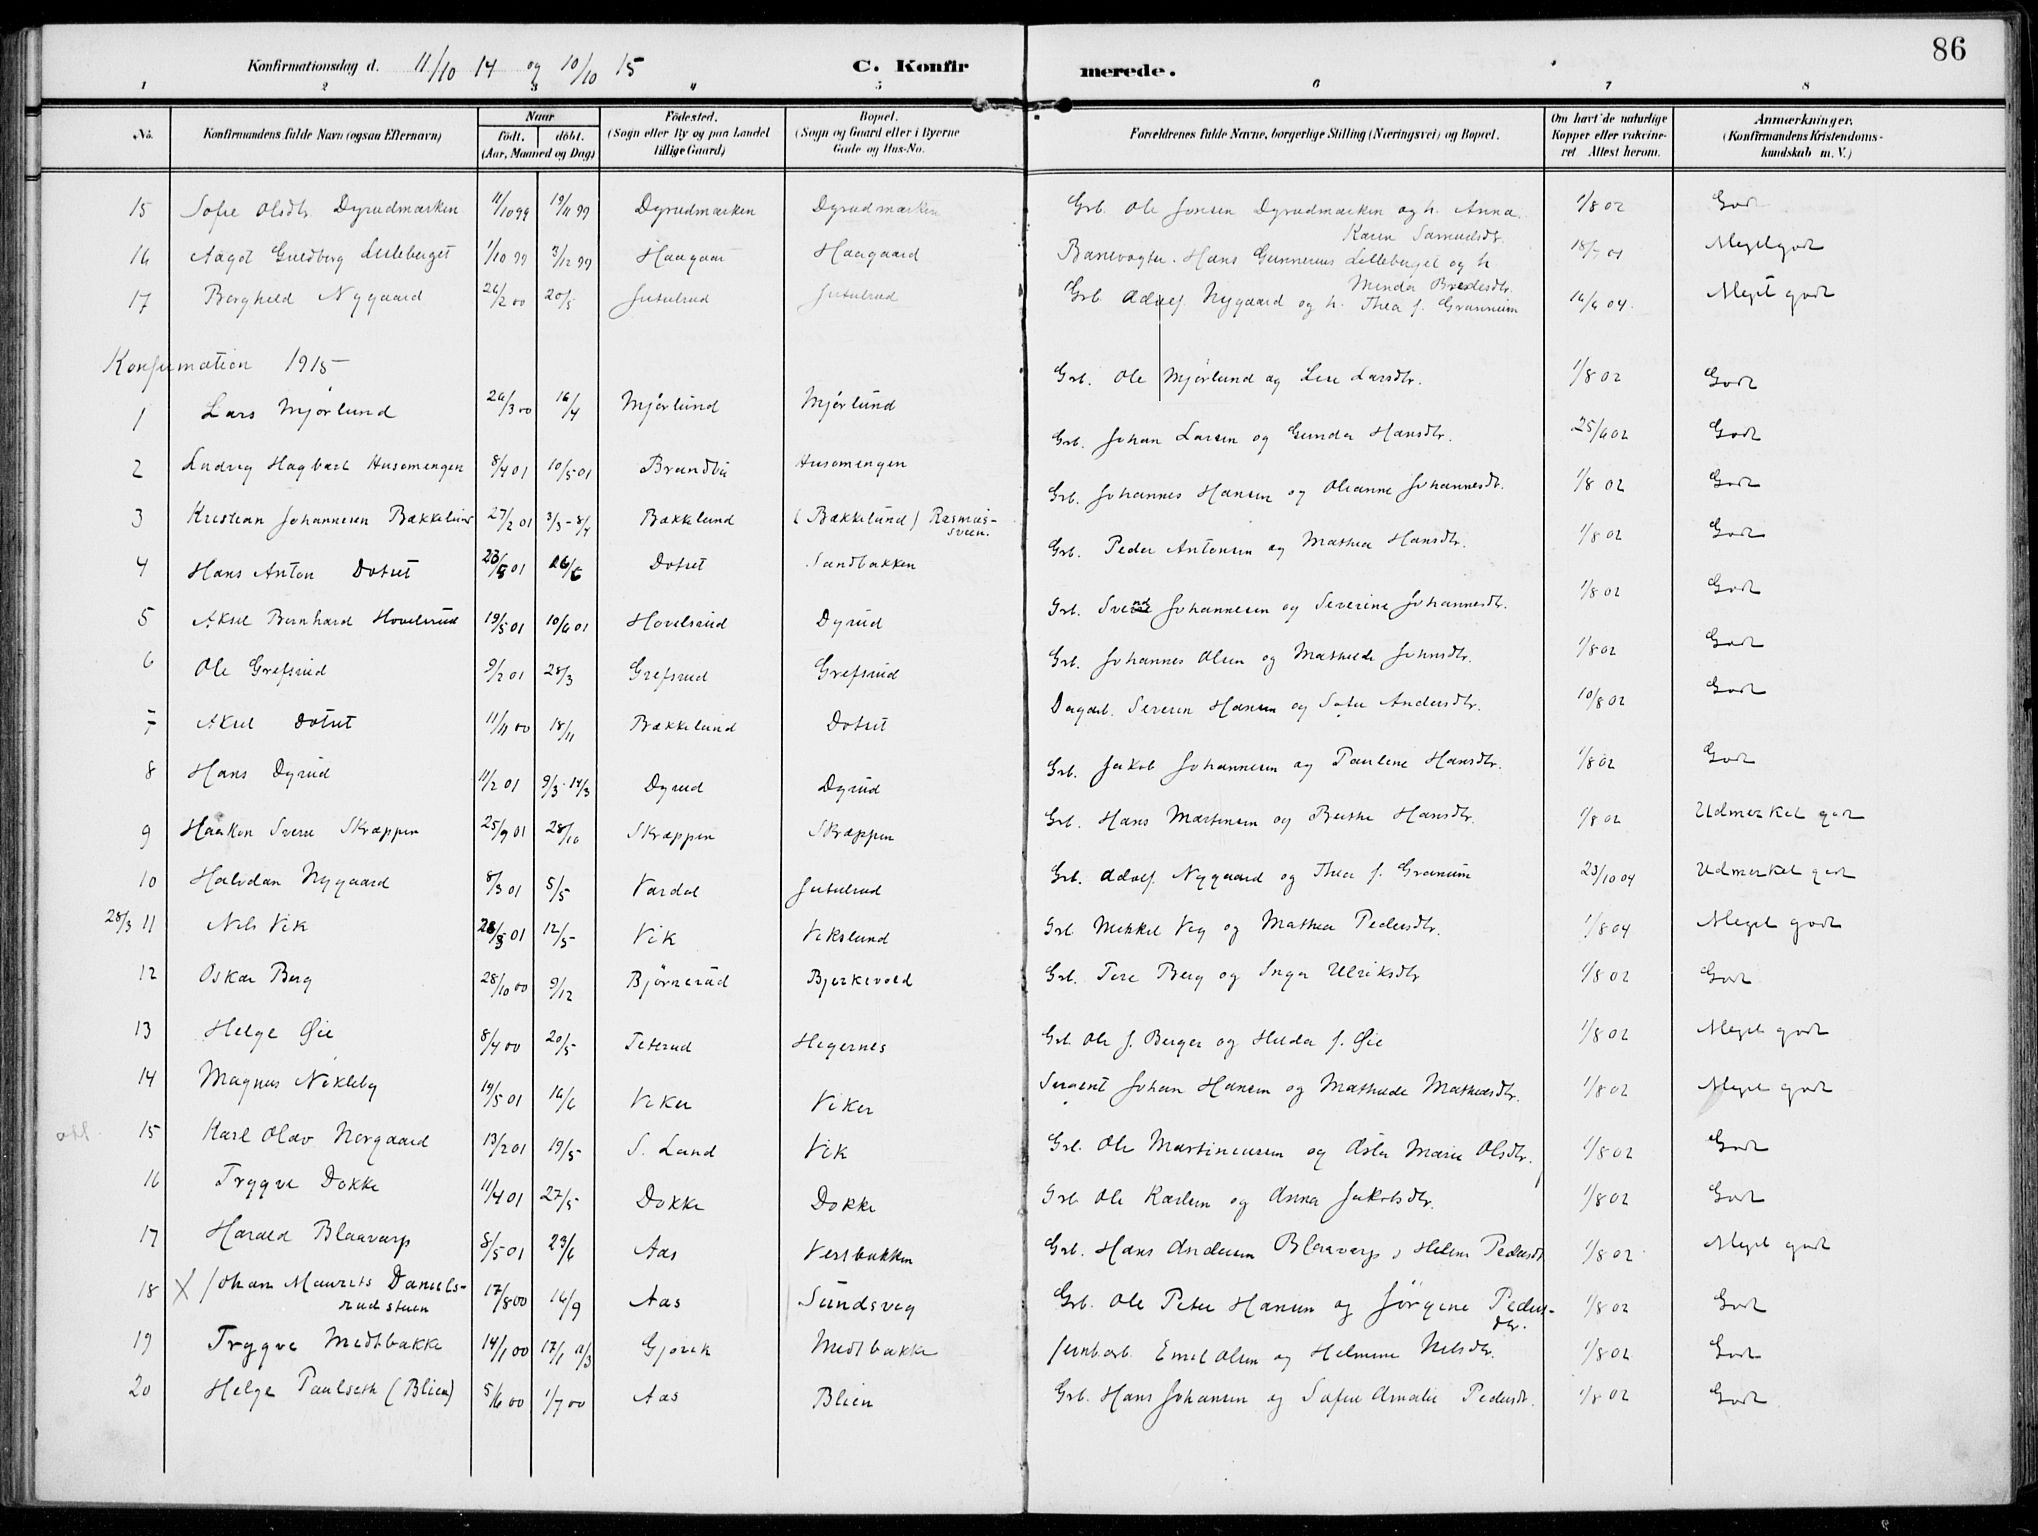 86
Konfirmationsdag d. 11/10 14 og 10/10 15 C. Konfirmerede.
1 2 3 4 5 6 7 8
No. Konfirmandens fulde Navn (ogsaa Efternavn) Naar födt. döbt. (Aar, Maaned og Dag) Födested. (Sogn eller By og paa Landet tillige Gaard) Bopæl. (Sogn og Gaard eller i Byerne Gade og Hus-No. Forældrenes fulde Navne, borgerlige Stilling (Næringsvei) og Bopæl. Om havt de naturlige Kopper eller vakcineret Attest herom. Anmærkninger. (Konfirmandens Kristendomskundskab m. V.)
15 Sofie Olsdtr Dyrudmarken 11/10 99 19/11 99 Dyrudmarken Dyrudmarken Grb. Ole Jonsen Dyrudmarken og h. Anna Karin Samuelsdtr. 1/8 02 Godt
16 Aagot Guldberg Lilleberget 1/10 99 3/12 99 Haagaar Haagaard Banevogter Hans Gunnerius Lilleberget og h. Minda Bredesdtr. 01 Meget godt
17 Borghild Nygaard 26/2 00 20/5 Jutulrud Jutulrud Grb. Adolf Nygaard og h. Thea f. Granum 16/6 04. Meget godt
Konfirmation 1915
1 Lars Mjørlund 26/3 00 16/4 Mjørlund Mjørlund Grb. Ole Mjørlund og Lise Larsdtr. 1/8 02 Godt
2 Ludvig Hagbart Husomengen 8/4 01 10/5 01 Brandbu Husomengen Grb. Johan Larsen og Gunda Hansdtr. 25/6 02 Godt
3 Kristian Johannesen Bækkelund 27/2 01 3/3 - 8/4 Bækkelund (Bækkelund) Rasmus-sveen. Grb. Johannes Hansen og Oleanne Johannesdtr. 1/8 02 Godt
4 Hans Anton Dotset 01 26/5 Dotset Sandbakken Grb. Peder Antonsen og Mathea Hansdtr. 1/8 02 Godt
5 Aksel Bernhard Hovelsrud 19/5 01 10/6 01 Hovelsrud Dyrud Grb. Svend Johannesen og Severine Johannesdtr. 1/8 02 Godt
6 Ole Grefsrud 9/2 01 28/3 Grefsrud Grefsrud Grb. Johannes Olsen og Mathilde Johnsdtr. 1/8 02 Godt
7 Aksel Dotset 11/11 00 18/11 Bækkelund Dotset Dagarb. Severin Hansen og Sofie Andersdtr. 10/8 02 Godt
8 Hans Dyrud 11/2 01 9/3 - 14/3 Dyrud Dyrud Grb. Jakob Johannesen og Pauline Hansdtr. 1/8 02 Godt
9 Haakon Sverre Skræppen 25/9 01 28/10 Skræppen Skræppen Grb. Hans Martinsen og Berthe Hansdtr. 1/8 02 Udmerket godt
10 Halvdan Nygaard 8/3 01 5/5 Vardal Jutulrud Grb. Adolf Nygaard og Thea f. Granum 23/10 04 Udmerket godt
28/3 11 Nils Vik 28/3 01 12/5 Vik Vikslund Grb Mikkel Vig og Mathea Pedersdtr. 1/8 04 Meget godt
12 Oskar Berg 28/10 00 9/12 Bjørnerud Bjerkevold Grb. Tore Berg og Inga Ulriksdtr 1/8 02 Godt
13 Helge Øie 8/4 00 20/5 Teterud Hegernes Grb. Ole J. Berger og Hilda f. Øie 1/8 02 Meget godt
14 Magnus Nøkleby 19/5 01 16/6 Viker Viker Sergent Johan Hansen og Mathilde Mathiasdtr. 1/8 02 Meget godt
15 Karl Olav Norgaard 13/2 01 19/5 S. Land Vik Grb. Ole Martinusen og Asta Marie Olsdtr. 1/8 02 Godt
16 Trygve Dokke 11/4 01 27/5 Dokke Dokke Grb. Ole Karlsen og Anna Jakobsdtr. 1/8 02 Godt
17 Harald Blaavarp 8/5 01 23/6 Aas Vestbakken Grb. Hans Andersen Blaavarp, Helene Pedersdt 1/8 02 Meget godt
18 X Johan Maurits Daniels-rudstuen 17/8 00 16/9 Aas Sundsveg Grb. Ole Peter Hansen og Jørgine Peders-dtr. 1/8 02 Godt
19 Trygve Medtbakke 14/1 00 17/1 11/3 Gjøvik Medtbakke Jernb.arb. Emil Olsen og Helmine Nilsdtr. 1/8 02 Godt
20 Helge Paulseth (Blien) 5/6 00 1/7 00 Aas Blien Grb. Hans Johansen og Sofie Amalie Pedersdt. 1/8 02 Godt